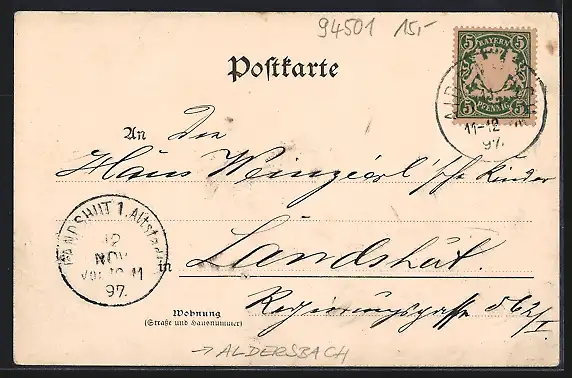 94501 15,-
5 BAYERN 5
5 PFENNIG 5
Postkarte
11-12
97.
An Die
Hans Weinzierl'sche Kinder
LANDSHUT 1. Altstadt
12
NOV
Vor. 10-11
97.
in Landshut.
Wohnung
(Straße und Hausnummer)
Regierungsgasse 562/I.
→ ALDERSBACH